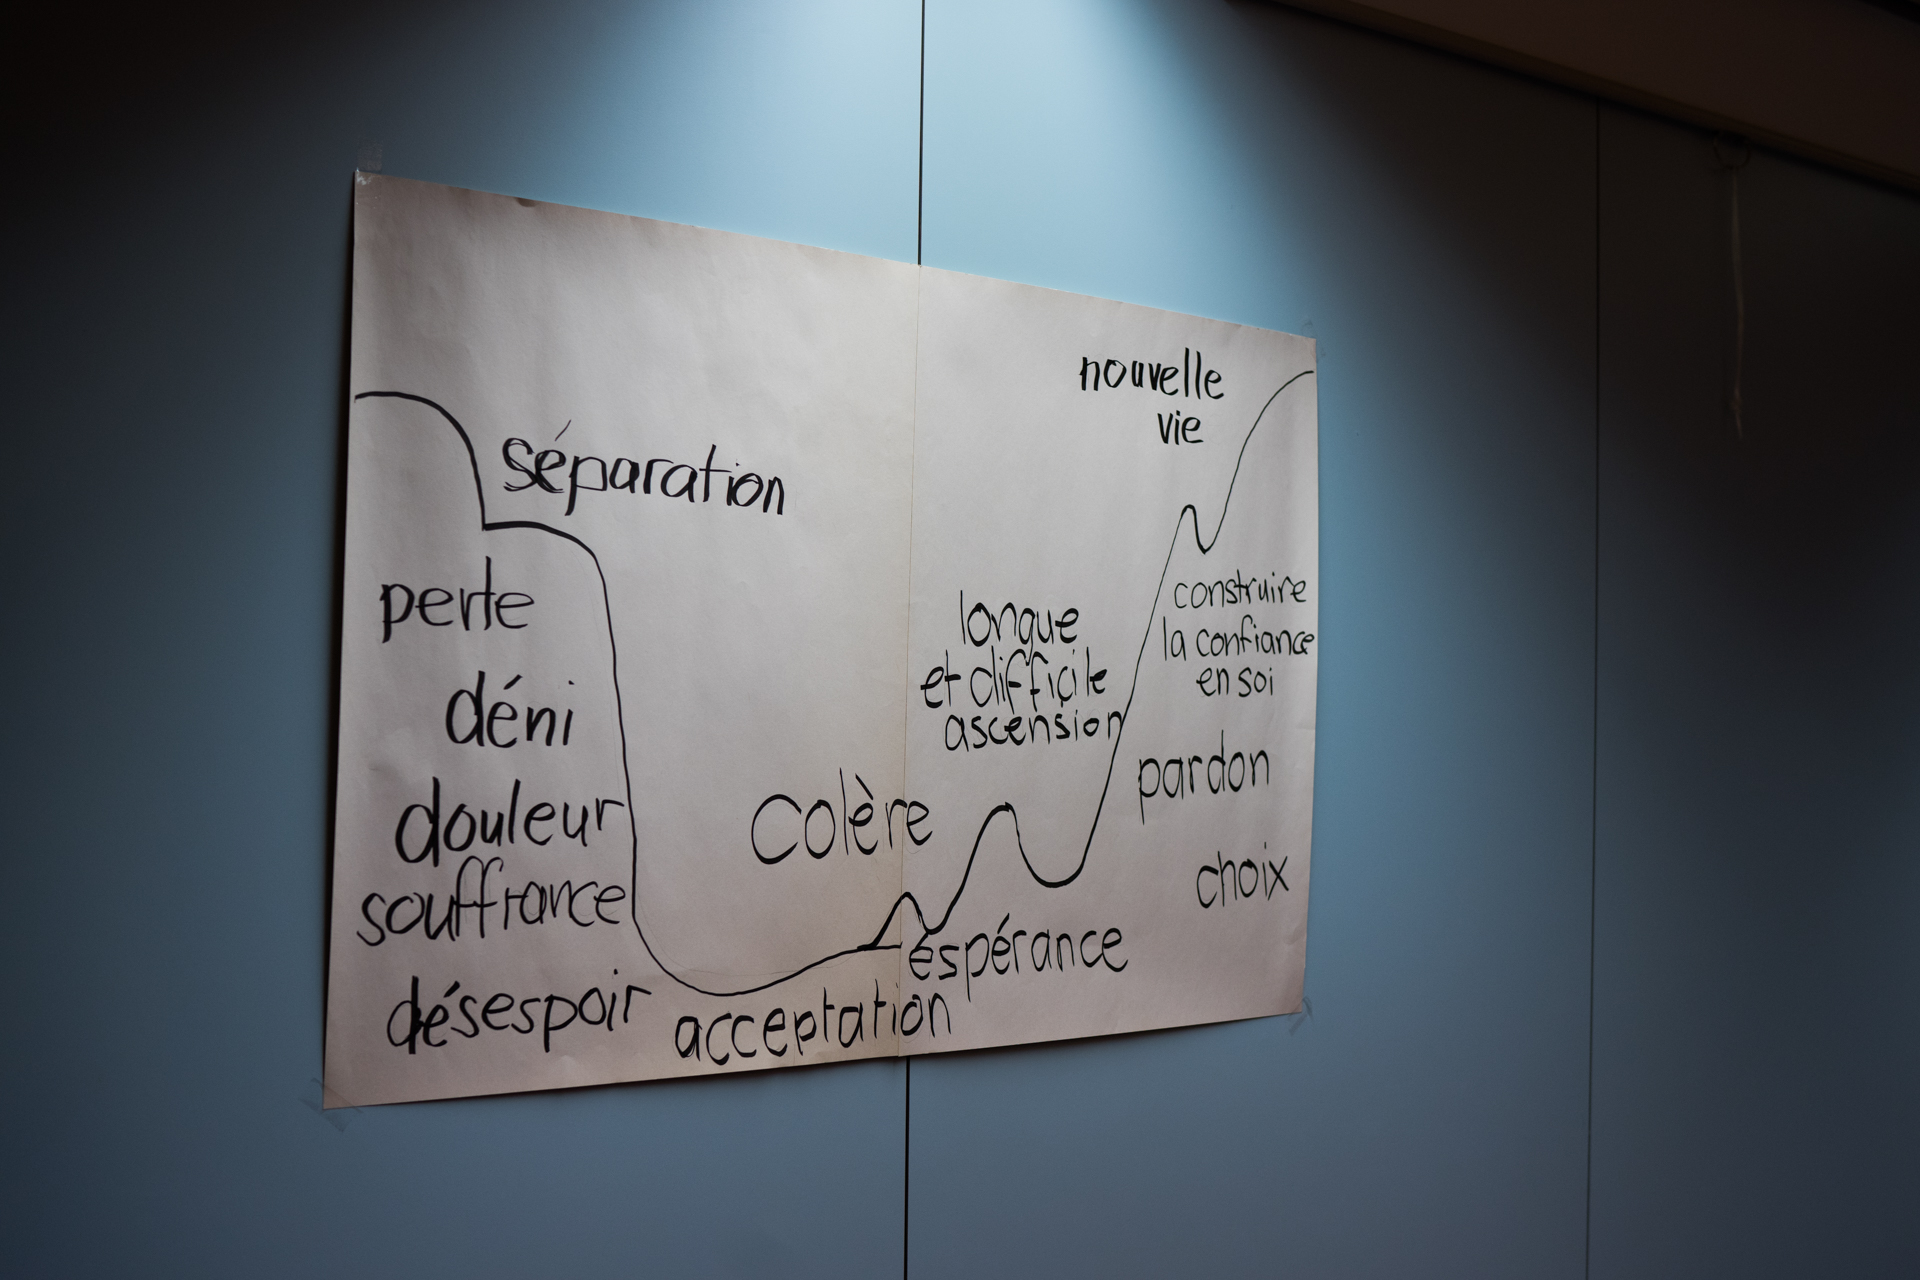 séparation
perte
déni
douleur
souffrance
désespoir
acceptation
colère
éspérance
longue
et difficile
ascension
nouvelle
vie
construire
la confiance
en soi
pardon
choix